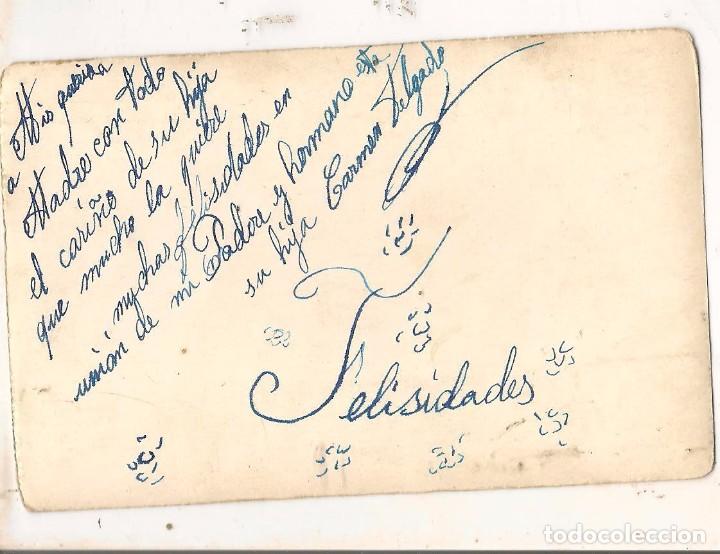 a Mis querida
Madre con todo
el cariño de su hija
que mucho la quiere
muchas felisidades en
unión de mi Padre y hermano esta
su hija Carmen Delgado
Felisidades
todocoleccion